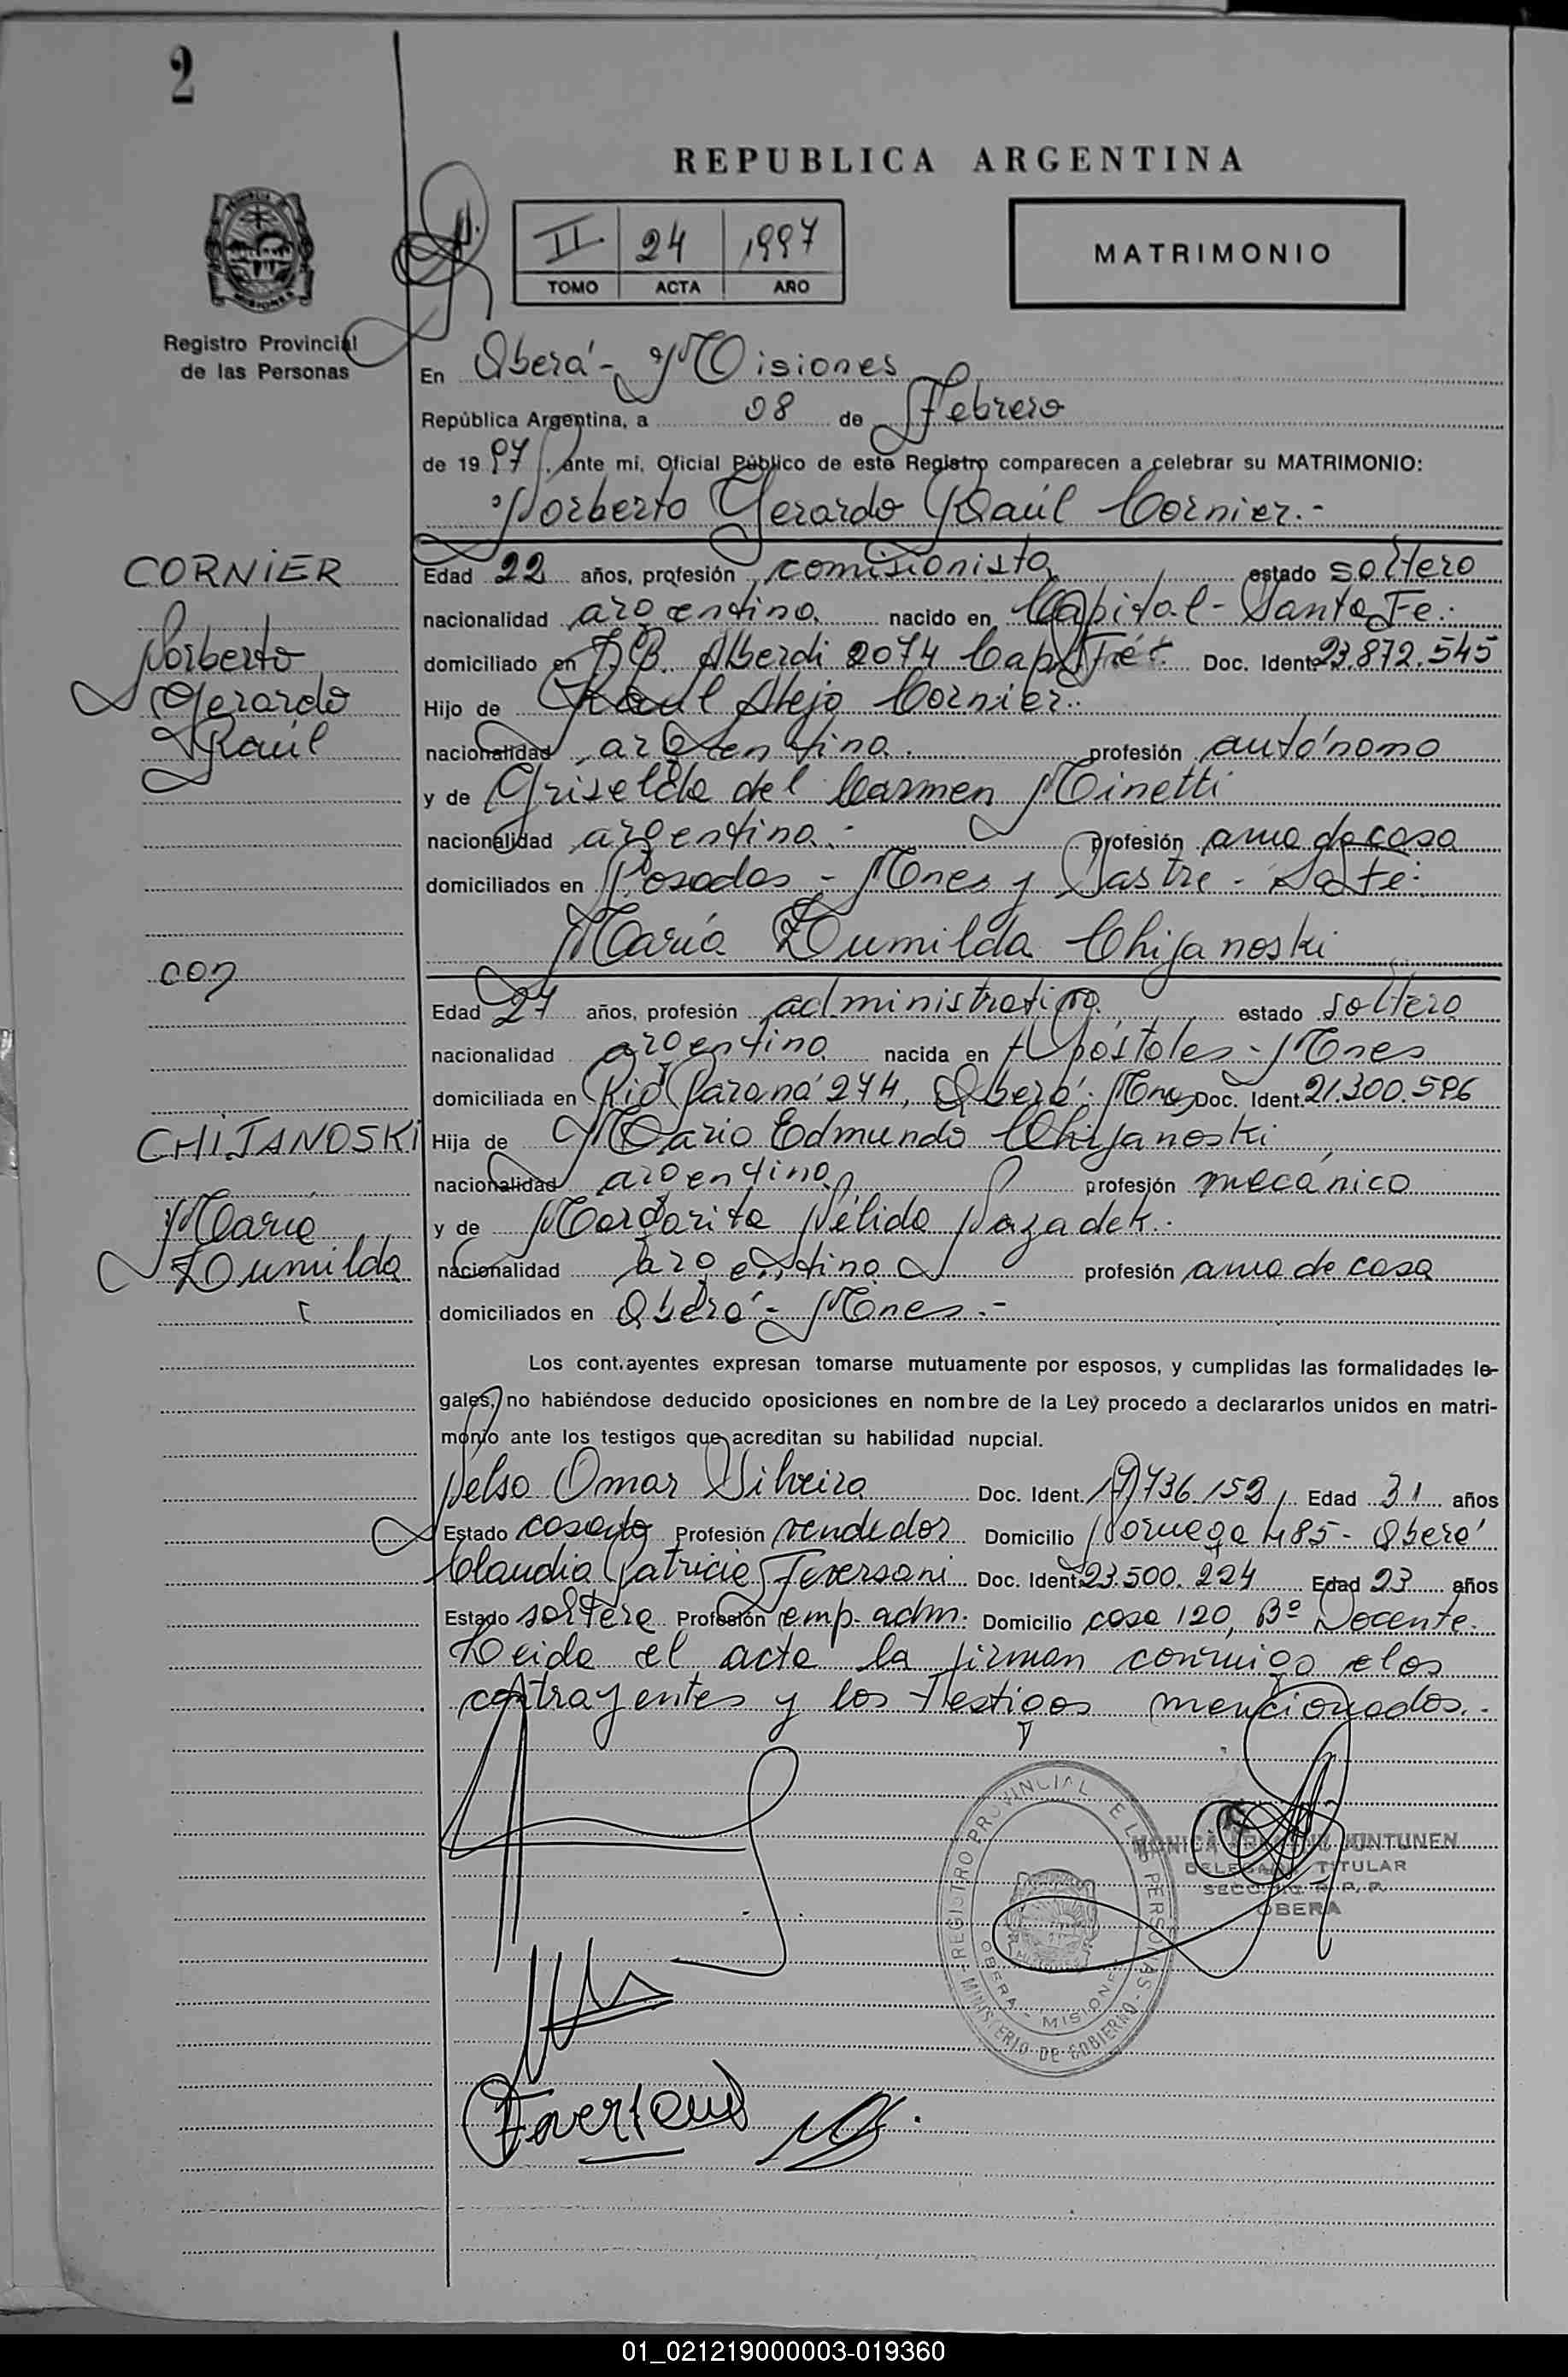 2
REPUBLICA ARGENTINA
II 24 1997
TOMO ACTA AÑO
MATRIMONIO
Registro Provincial
de las Personas
En Oberá - Misiones
República Argentina, a 08 de Febrero
de 19 97 ante mí, Oficial Público de este Registro comparecen a celebrar su MATRIMONIO:
Norberto Gerardo Raúl Cornier.-
CORNIER
Norberto
Gerardo
Raúl
Edad 22 años, profesión comisionista estado soltero
nacionalidad argentina nacido en Capital - Santa Fe.
domiciliado en J.B. Alberdi 2074 Cap. Doc. Ident. 23.872.545
Hijo de Raúl Alejo Cornier.
nacionalidad argentina. profesión autónomo
y de Griselda del Carmen Minetti
nacionalidad argentina. profesión ama de casa
domiciliados en Posadas - Mnes y Sastre - Sta Fe.
María Lumilda Chijanoski
con
CHIJANOSKI
María
Lumilda
Edad 27 años, profesión administrativa estado soltera
nacionalidad argentina nacida en Apóstoles - Mnes
domiciliada en Río Paraná 274, Oberá. Mnes Doc. Ident. 21.300.596
Hija de Mario Edmundo Chijanoski
nacionalidad argentina profesión mecánico
y de Margarita Nélida Nazadek.
nacionalidad argentina profesión ama de casa
domiciliados en Oberá - Mnes.-
Los cont.ayentes expresan tomarse mutuamente por esposos, y cumplidas las formalidades le-
gales, no habiéndose deducido oposiciones en nombre de la Ley procedo a declararlos unidos en matri-
monio ante los testigos que acreditan su habilidad nupcial.
Nelso Omar Silveira Doc. Ident. 17.736.152 Edad 31 años
Estado casado Profesión vendedor Domicilio Noruega 485 - Oberá
Claudia Patricia Doc. Ident. 23.500.224 Edad 23 años
Estado soltera Profesión emp. adm. Domicilio casa 120, Bº Docente.
Leida el acta la firman conmigo los
contrayentes y los testigos mencionados.-
REGISTRO PROVINCIAL DE LAS PERSONAS
OBERA - MISIONES
MINISTERIO DE GOBIERNO
MONICA JUNTUNEN
DELEGADA TITULAR
R. P. P.
OBERA
01_021219000003-019360